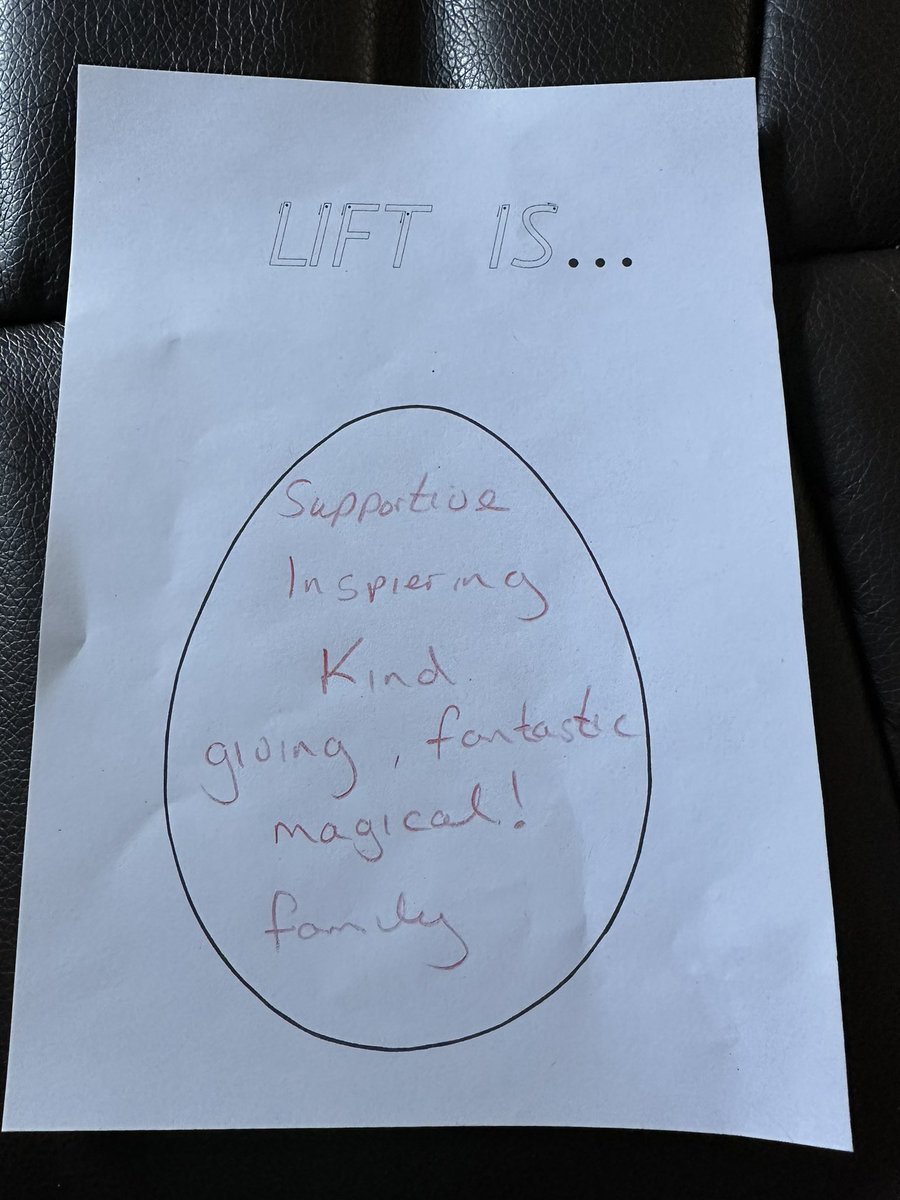 LIFT IS...
Supportive
Inspiering
Kind
giving, fantastic
magical!
family